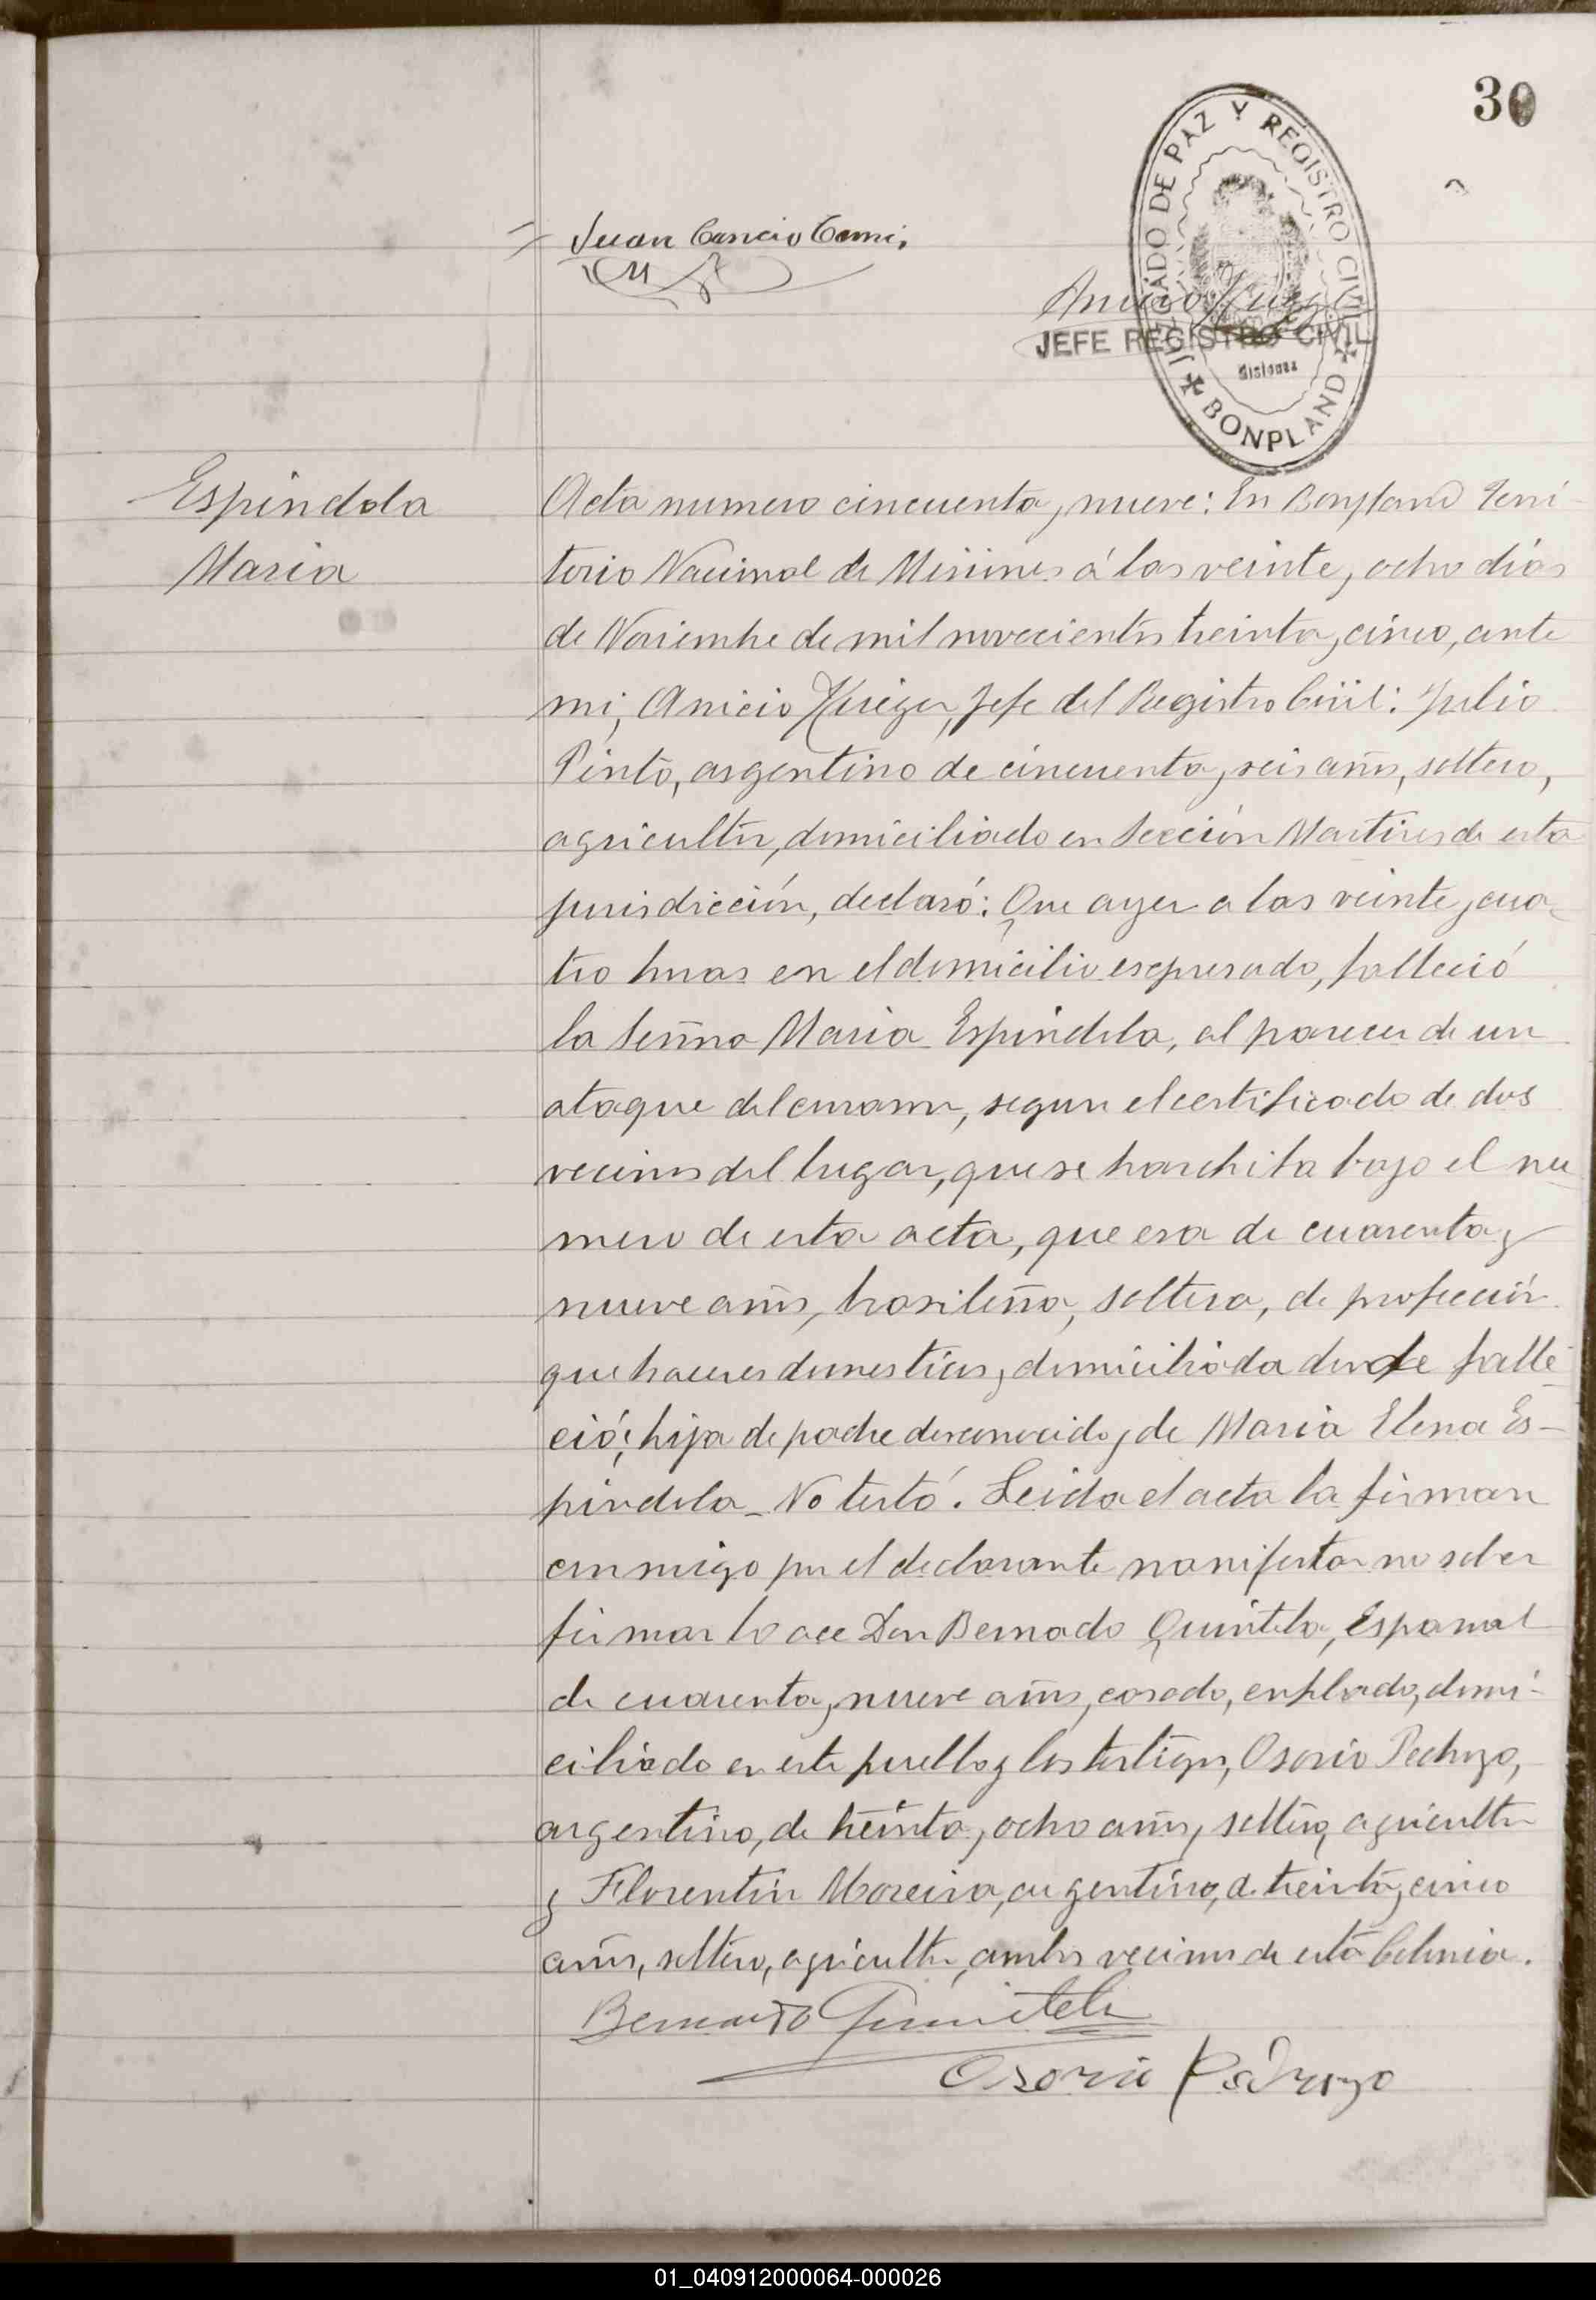 30
JUZGADO DE PAZ Y REGISTRO CIVIL
Juan Cancio
JEFE REGISTRO CIVIL
Misiones
BONPLAND
Espindola
Maria
Acta numero cincuenta y nueve: En Bonpland Terri-
torio Nacional de Misiones á los veinte y ocho dias
de Noviembre de mil novecientos treinta y cinco, ante
mi, Anicio Kruger, Jefe del Registro Civil: Julio
Pinto, argentino de cincuenta y seis años, soltero,
agricultor, domiciliado en Sección Martires de esta
jurisdicción, declaró: Que ayer a las veinte y cua-
tro horas en el domicilio expresado, falleció
la Señora Maria Espindola, al parecer de un
ataque del corazon, segun el certificado de dos
vecinos del lugar, que se harchiba bajo el nu
mero de esta acta, que era de cuarenta y
nueve años, brasileña, soltera, de profeción
que haceres domesticos y domiciliada donde falle-
ció; hija de padre desconocido y de Maria Elena Es-
pindola - No testó. Leida el acta la firman
conmigo por el declarante manifestar no saber
firmar lo ace Don Bernado Quintela, Español
de cuarenta y nueve años, casado, enpleado, domi-
ciliado en este pueblo y los testigos, Osorio Pedrozo,
argentino, de treinta y ocho años, soltero, agricultor
y Florentin Moreira, argentino, de treinta y cinco
años, soltero, agricultor, ambos vecinos de esta Colonia.
Bernardo Quintela
Osorio Pedrozo
01_040912000064-000026